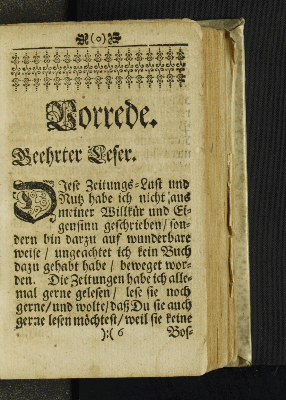 (o)
Vorrede.
Geehrter Leser.
DIese Zeitungs-Last und
Nutz habe ich nicht aus
meiner Willkür und Ei-
gensinn geschrieben / son-
dern bin darzu auf wunderbare
weise / ungeachtet ich kein Buch
dazu gehabt habe / beweget wor-
den. Die Zeitungen habe ich alle-
mal gerne gelesen / lese sie noch
gerne / und wolte / daß Du sie auch
gerne lesen möchtest / weil sie keine
):( 6
Bos-